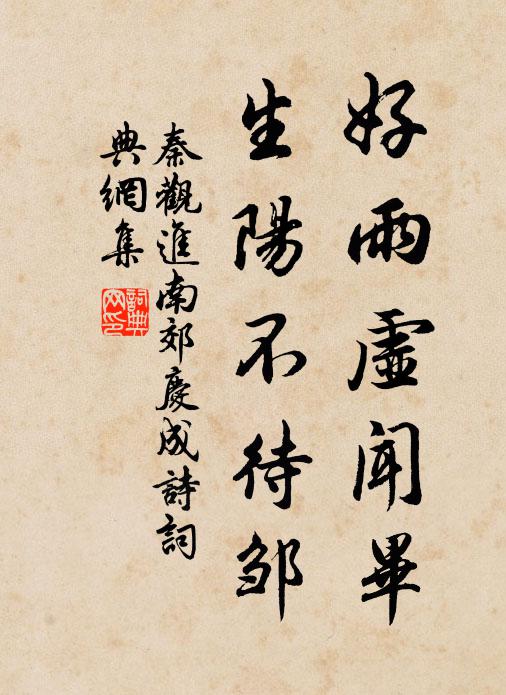 好雨虛聞畢
生陽不待邹
秦觀進南郊慶成詩詞
典網集
詞典
网印